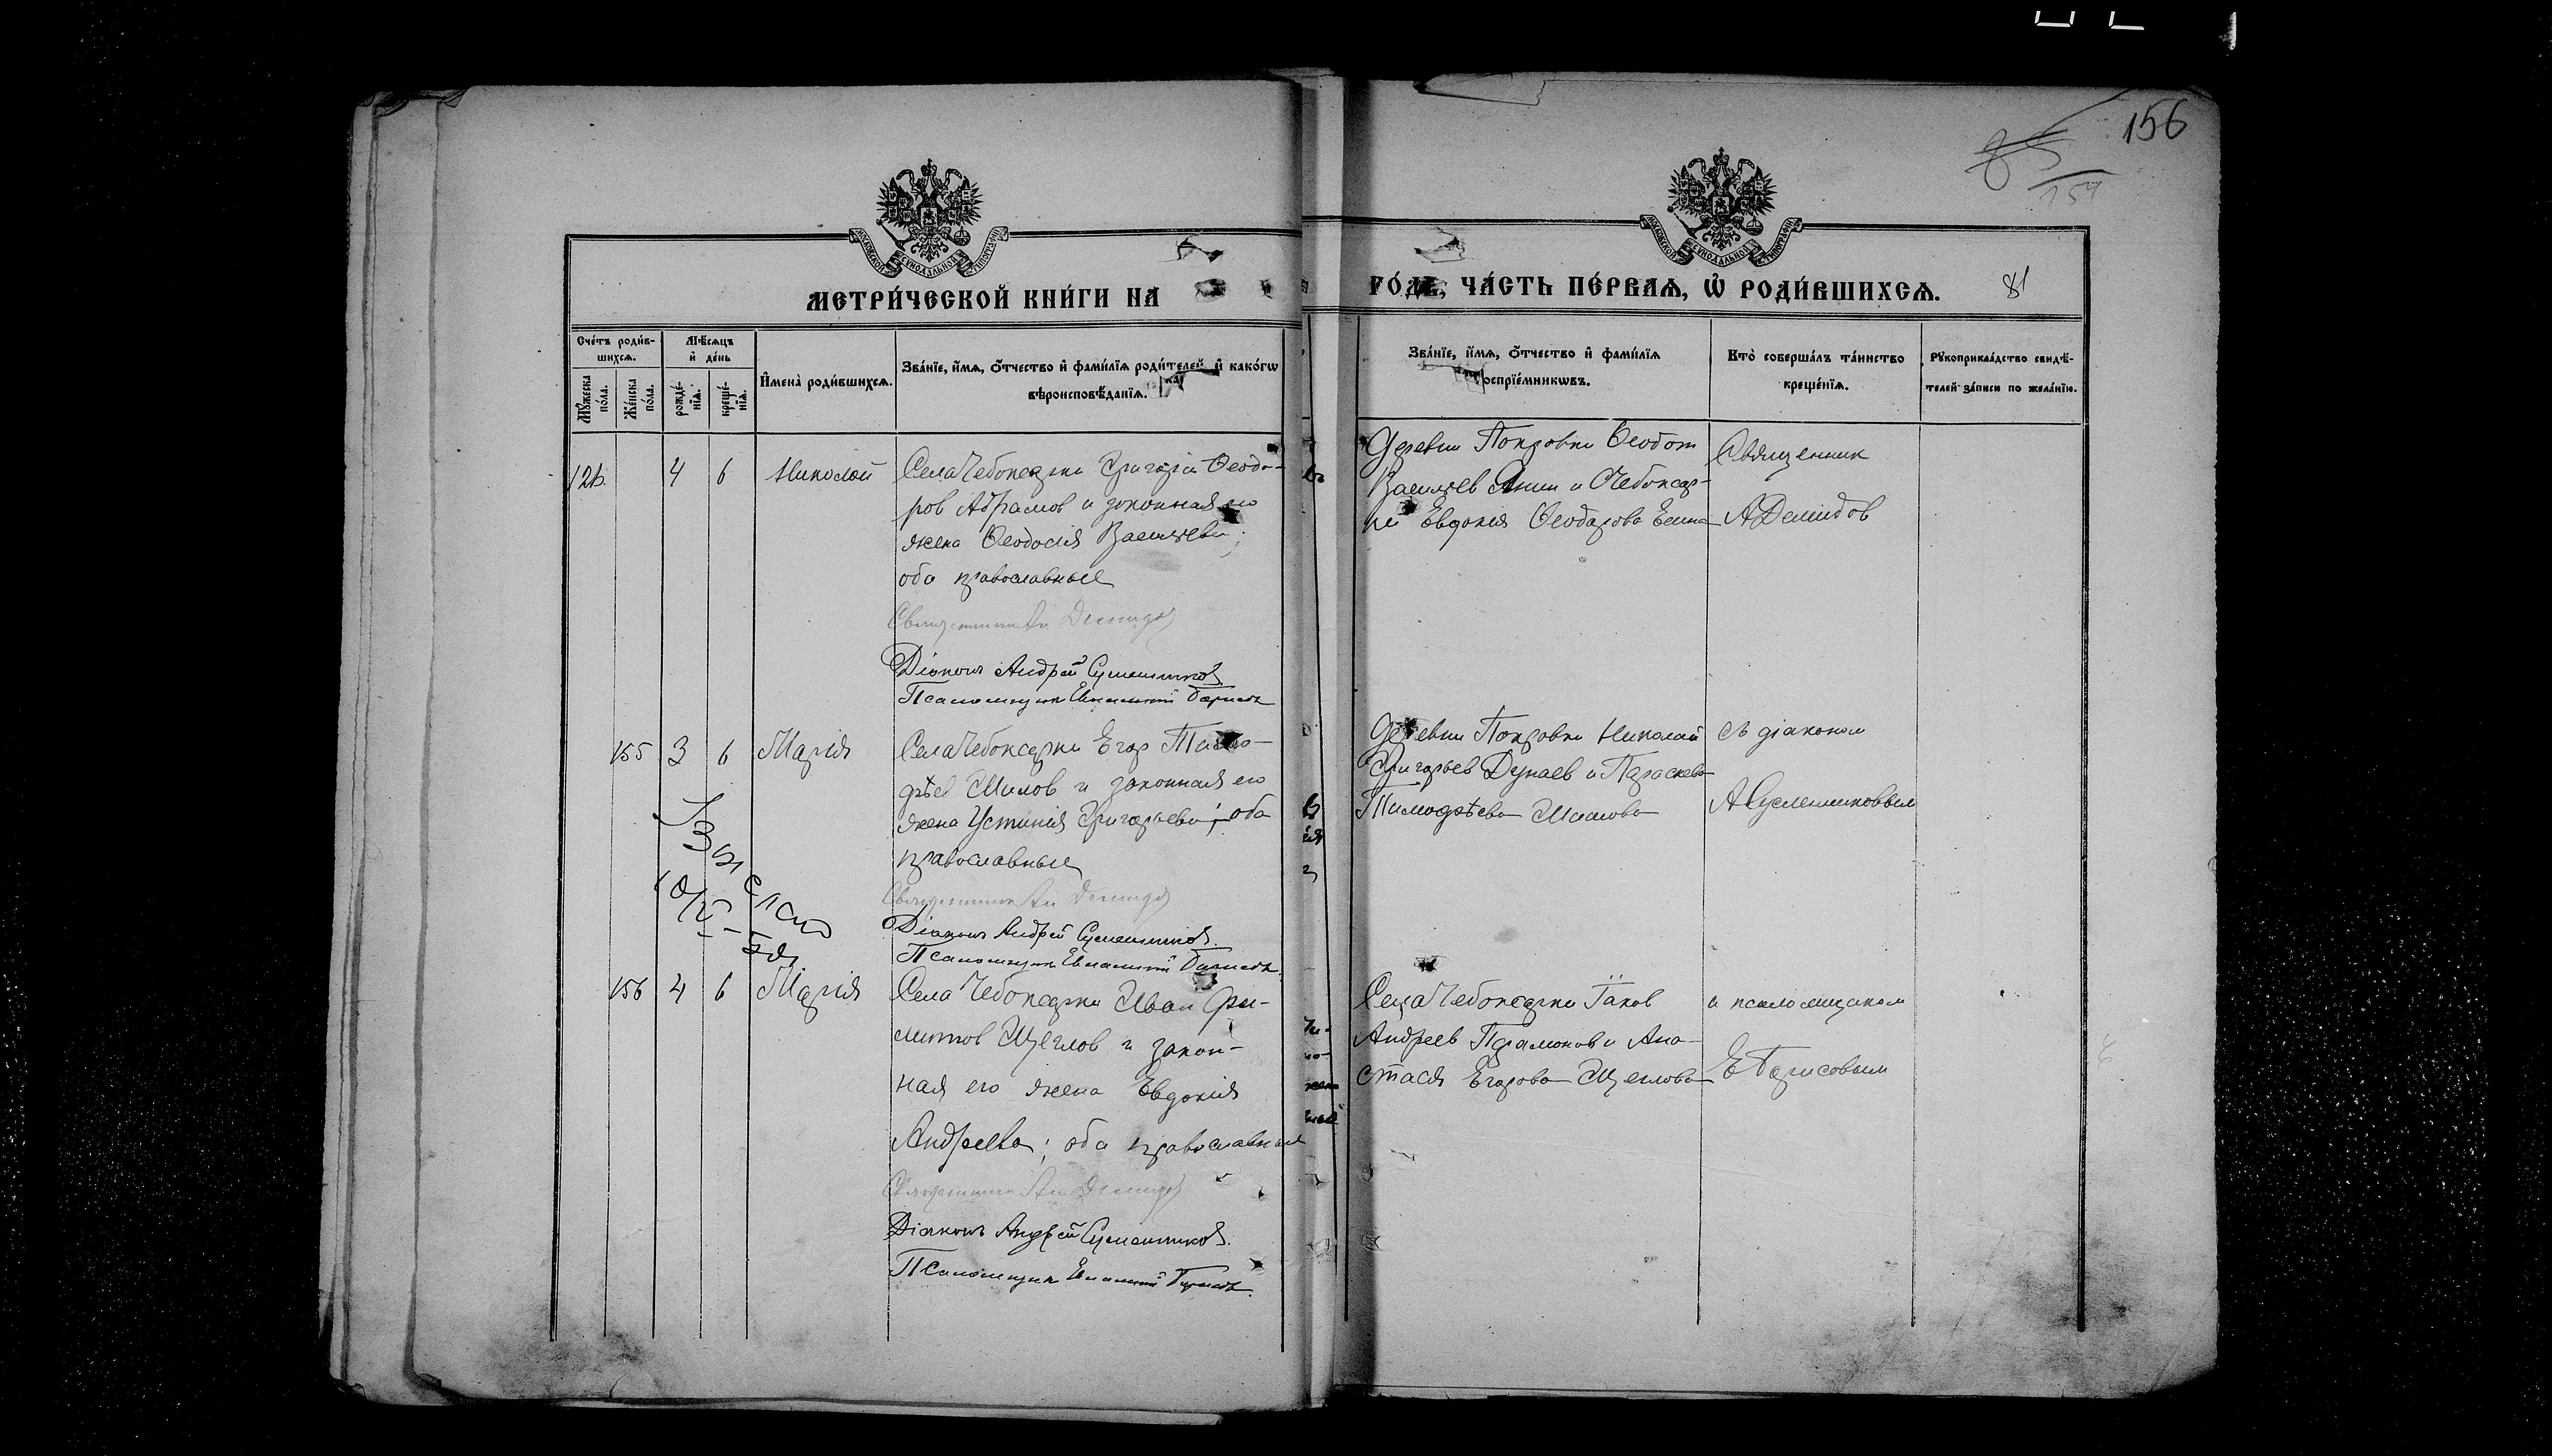 156
85
154
МОСКОВСКОЙ СѴНОДАЛЬНОЙ ТИПОГРАФІИ
МОСКОВСКОЙ СѴНОДАЛЬНОЙ ТИПОГРАФІИ
МЕТРИ́ЧЕСКОЙ КНИ́ГИ НА
ГО́ДЪ, ЧА́СТЬ ПЕ́РВАѦ, Ѡ҆ РОДИ́ВШИХСѦ.
81
Сче́тъ роди́в-
шихсѧ.
Мꙋ́жеска по́ла.
Же́нска по́ла.
Мѣ́сѧцъ
и҆ де́нь
рожде́-
нїѧ.
креще́-
нїѧ.
И҆мена̀ роди́вшихсѧ.
Зва́нїе, и҆́мѧ, о҆́тчество и҆ фами́лїѧ роди́телей, и҆ како́гѡ
вѣроисповѣ́данїѧ.
Зва́нїе, и҆́мѧ, о҆́тчество и҆ фами́лїѧ
воспрїе́мникѡвъ.
Кто̀ соверша́лъ та́инство
креще́нїѧ.
Рꙋкоприкла́дство свидѣ́-
телей за́писи по жела́нїю.
4
6
Николай
Села Чебоксарки Григорій Ѳеодо-
ров Абрамов и законная его
жена Ѳеодосія Васильева;
оба православные
Священник Демидов
Діаконъ Андрей Сусленников
Псаломщик Евлампій Борисов
Деревни Покровки Ѳеодот
Васильев Янин и Чебоксар-
ки Евдокія Ѳеодорова
Священник
А Демидов
155
3
6
Марія
Села Чебоксарки Егор Тимо-
фѣев Шилов и законная его
жена Устинія Григорьева; оба
православные
Священник Демидов
Діаконъ Андрей Сусленников
Псаломщик Евлампій Борисов
Деревни Покровки Николай
Григорьев Дунаев и Параскева
Тимофѣева Шилова
съ діаконом
А Сусленниковым
156
4
6
Марія
Села Чебоксарки Иван Фи-
липпов Щеглов и закон-
ная его жена Евдокія
Андреева; оба православные
Священник Демидов
Діаконъ Андрей Сусленников
Псаломщик Евлампій Борисов
Села Чебоксарки Іаков
Андреев Парамонов и Ана-
стасія Егорова Щеглова
и псаломщиком
Е Борисовым